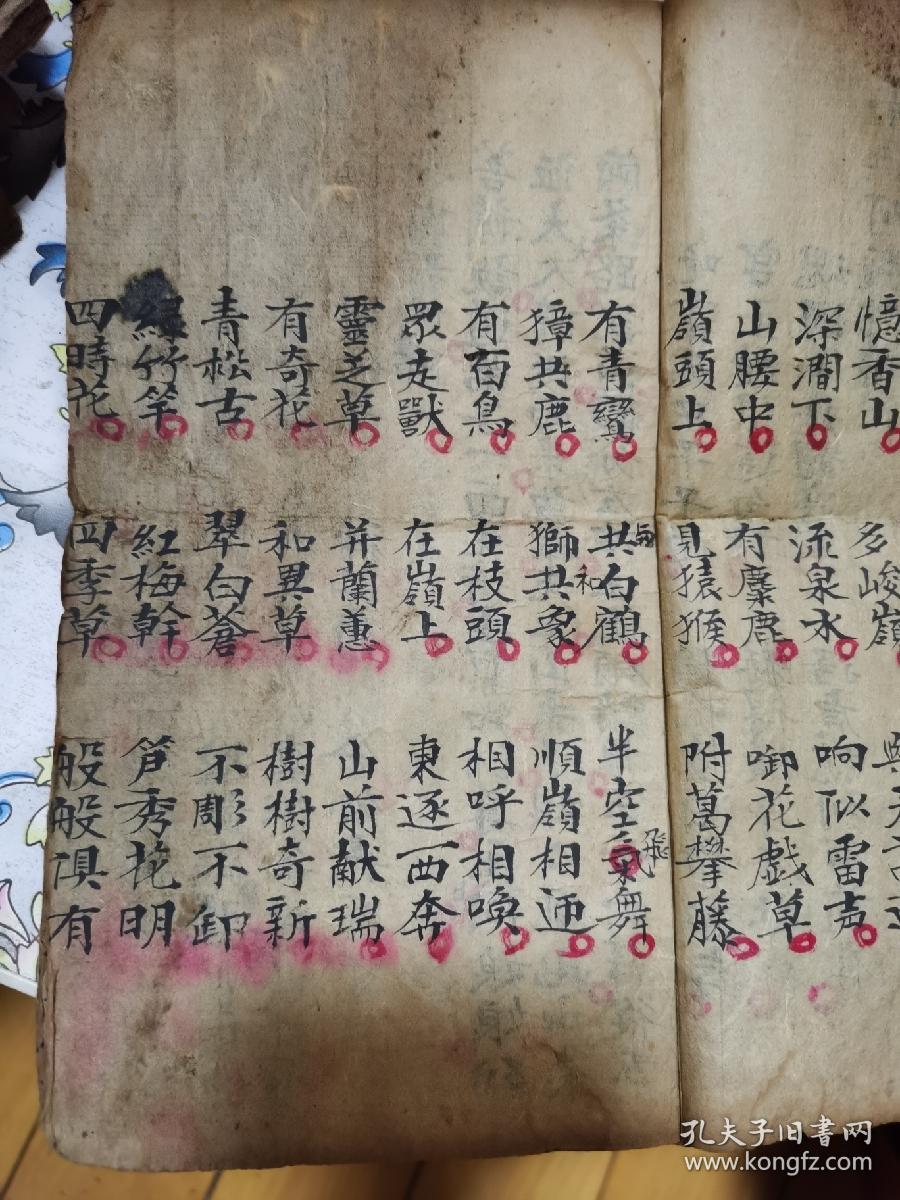 憶香山 多峻嶺
深澗下 流泉水 响似雷声
山腰中 有麋鹿 啣花戯草
嶺頭上 見猿猴 附葛攀藤
有青鸞 共白鶴 半空飛舞
獐共鹿 獅和象 順嶺相
有百鳥 在枝頭 相呼相喚
眾走獸 在嶺上 東逐西奔
靈芝草 并蘭蕙 山前献瑞
有奇花 和異草 樹樹奇新
青松古 翠白蒼 不彫不卸
綠竹竿 紅梅幹 笋秀花明
四時花 四季草 般般俱有
孔夫子旧书网
www.kongfz.com